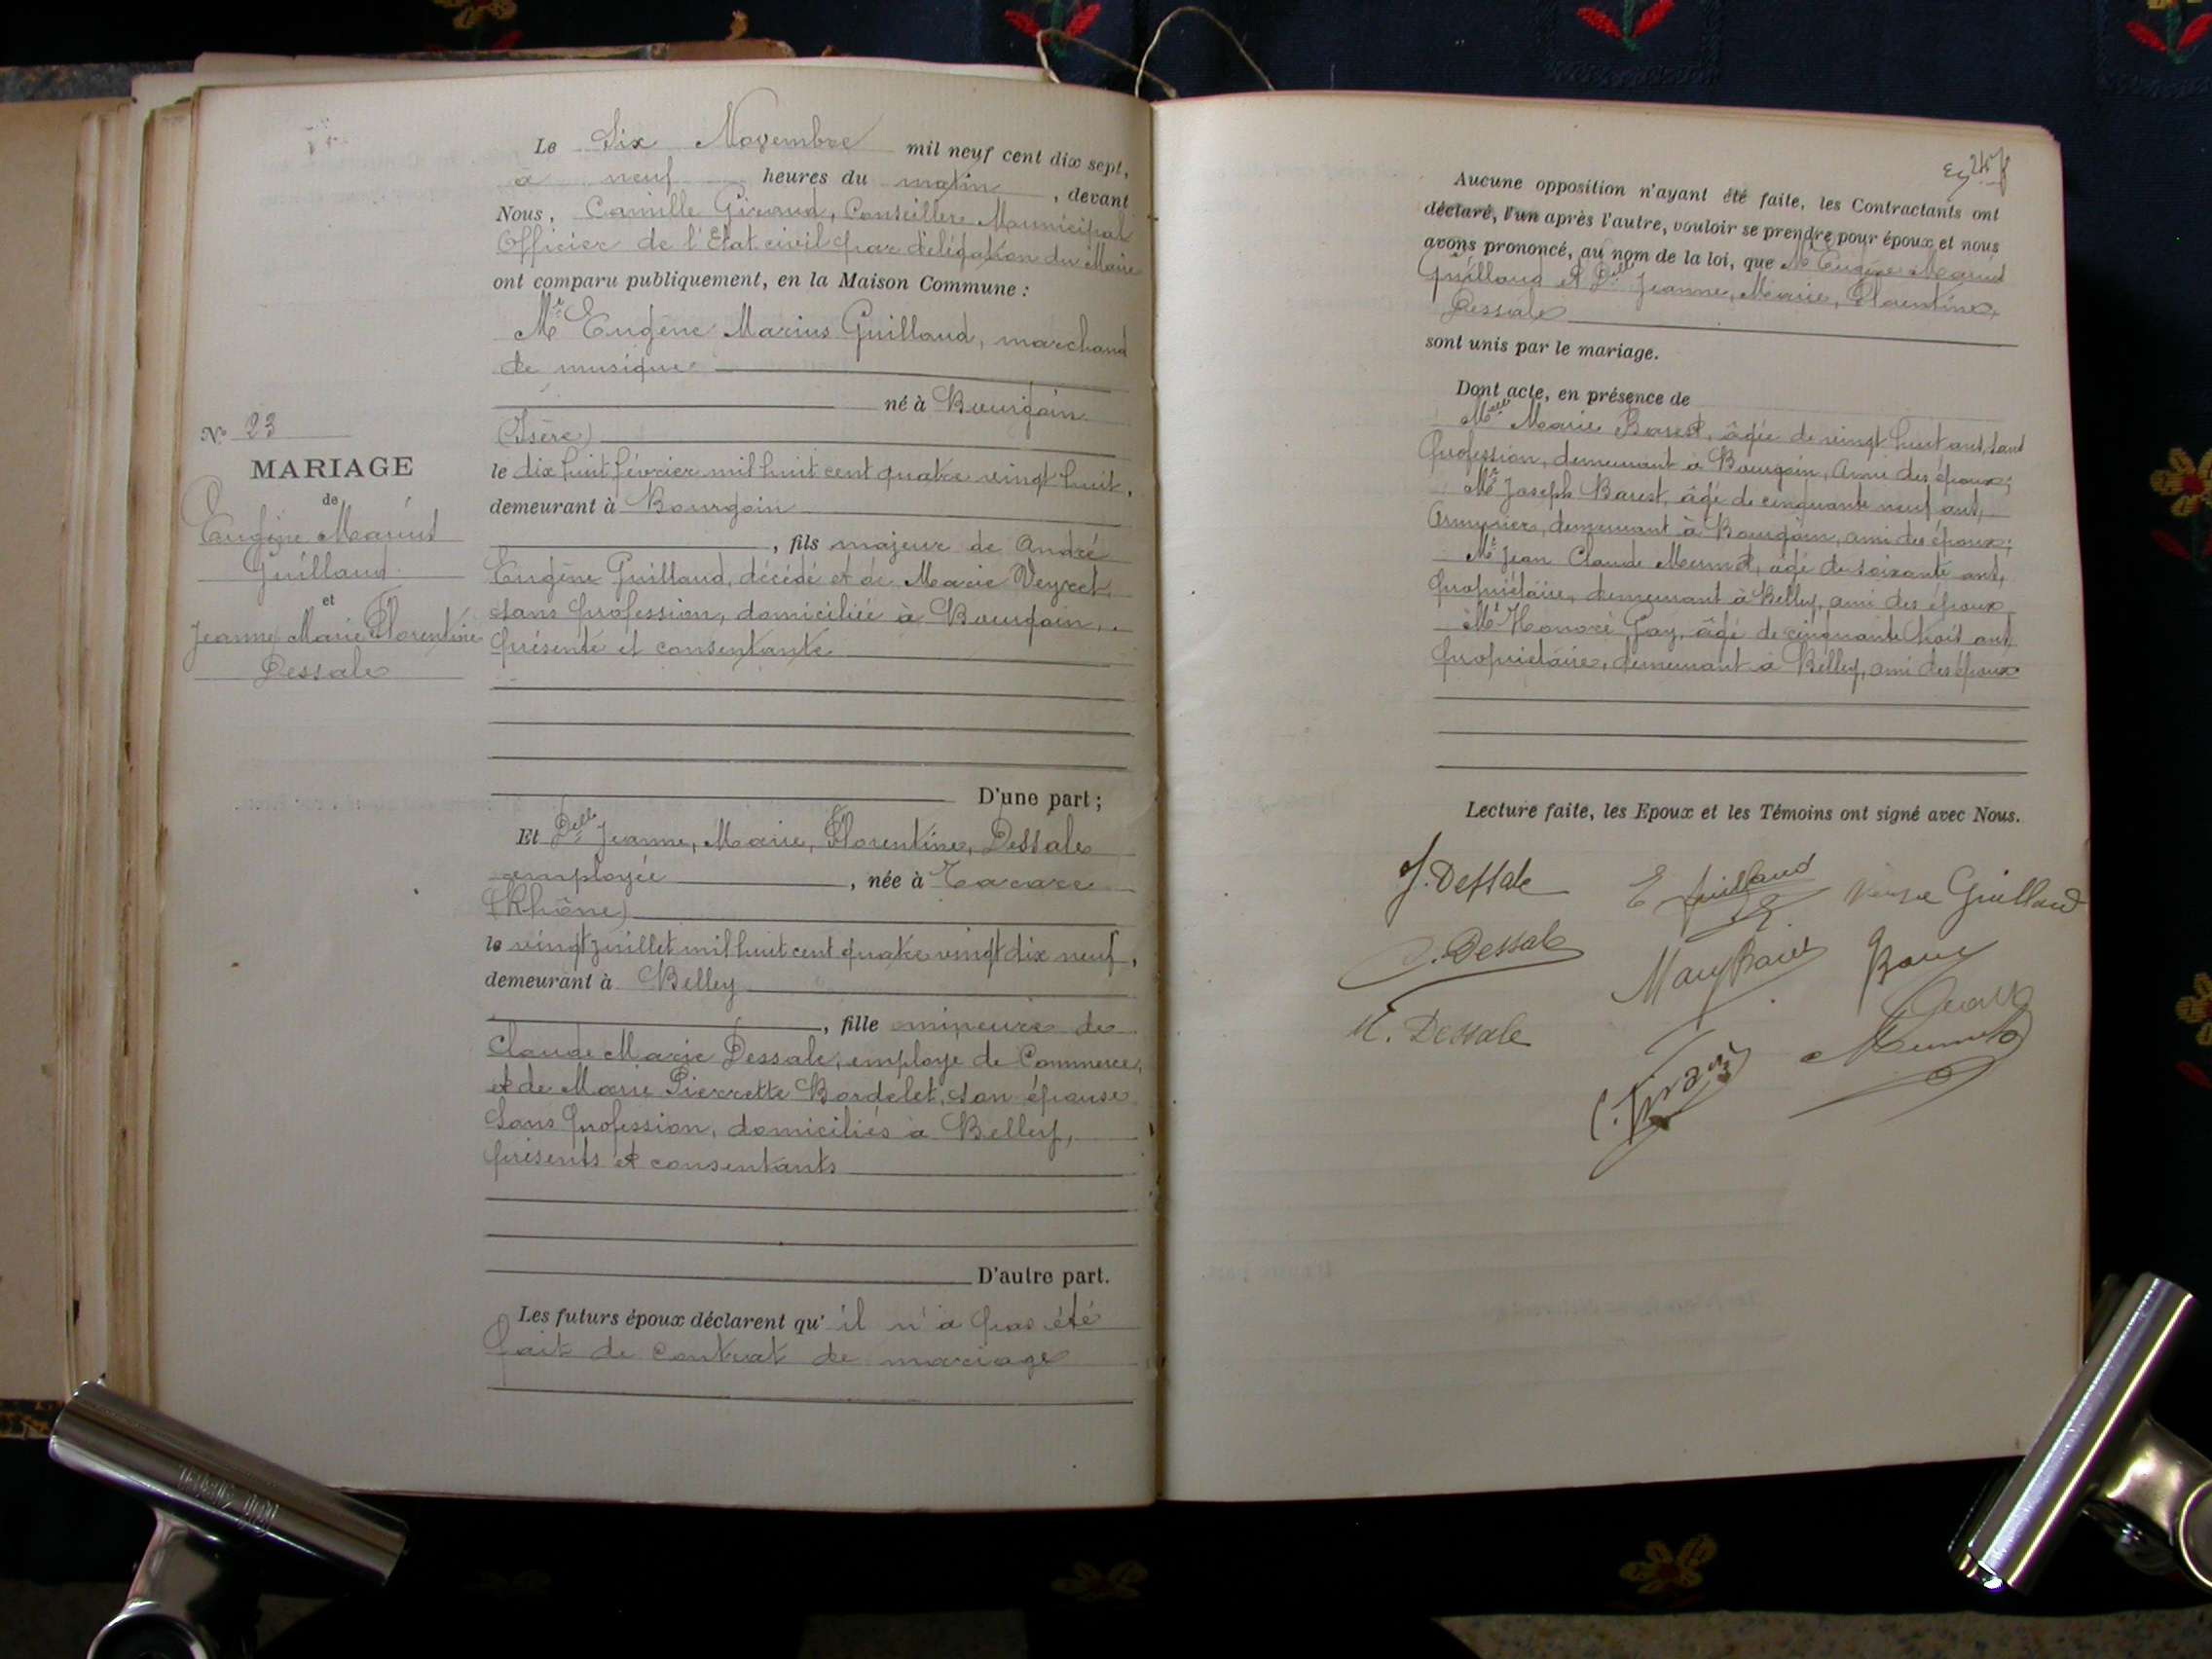 Le Six Novembre mil neuf cent dix sept,
à neuf heures du matin, devant
Nous, Camille Giraud, Conseiller Municipal
Officier de l'Etat civil par délégation du Maire
ont comparu publiquement, en la Maison Commune :
Mr Eugène Marius Guillaud, marchand
de musique
né à Bourgoin
(Isère)
le dix huit février mil huit cent quatre vingt huit,
demeurant à Bourgoin
, fils majeur de André
Eugène Guillaud, décédé et de Marie Veyret,
sans profession, domiciliée à Bourgoin,
présente et consentante
D'une part ;
Nº 23
MARIAGE
de
Eugène Marius
Guillaud
et
Jeanne Marie Florentine
Dessale
Et Delle Jeanne, Marie, Florentine, Dessale
employée, née à Tarare
(Rhône)
le vingt juillet mil huit cent quatre vingt dix neuf,
demeurant à Belley
, fille mineure de
Claude Marie Dessale, employé de Commerce,
et de Marie Pierrette Bordelet, son épouse
sans profession, domiciliés à Belley,
présents et consentants
D'autre part.
Les futurs époux déclarent qu'il n'a pas été
fait de contrat de mariage
Aucune opposition n'ayant été faite, les Contractants ont
déclaré, l'un après l'autre, vouloir se prendre pour époux et nous
avons prononcé, au nom de la loi, que Mr Eugène Marius
Guillaud et Delle Jeanne, Marie, Florentine,
Dessale
sont unis par le mariage.
Dont acte, en présence de
Melle Marie , âgée de vingt huit ans, sans
profession, demeurant à Bourgoin, amie des époux;
Mr Joseph , âgé de cinquante neuf ans,
Armurier, demeurant à Bourgoin, ami des époux;
Mr Jean Claude , âgé de soixante ans,
propriétaire, demeurant à Belley, ami des époux
Mr Honoré Gay, âgé de cinquante trois ans
propriétaire, demeurant à Belley, ami des époux
Lecture faite, les Epoux et les Témoins ont signé avec Nous.
J. Dessale E Guillaud Veuve Guillaud
Dessale
M. Dessale